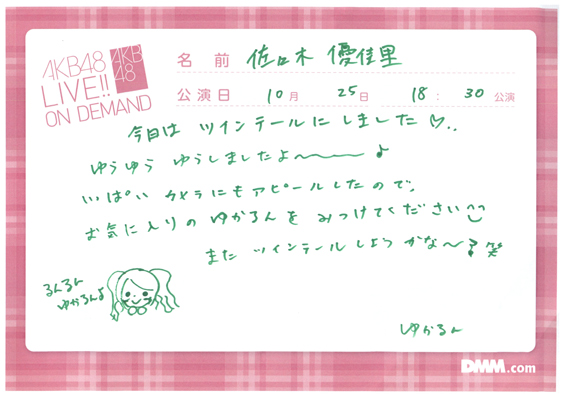 AKB48
LIVE!!
ON DEMAND
AKB
48
名前 佐々木 優佳里
公演日 10月 25日 18:30 公演
今日は ツインテールにしました♡..
ゆうゆう ゆうしましたよ〜 ♪
いぱい カメラにもアピールしたので、
お気に入りの ゆかるんを みつけてください^^
また ツインテールしよう かな〜? 笑
るんるん
ゆかるん♪
ゆかるん
DMM.com